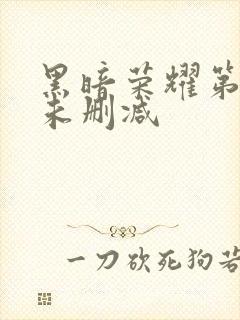 黑暗荣耀第
未删减
一刀砍死狗若